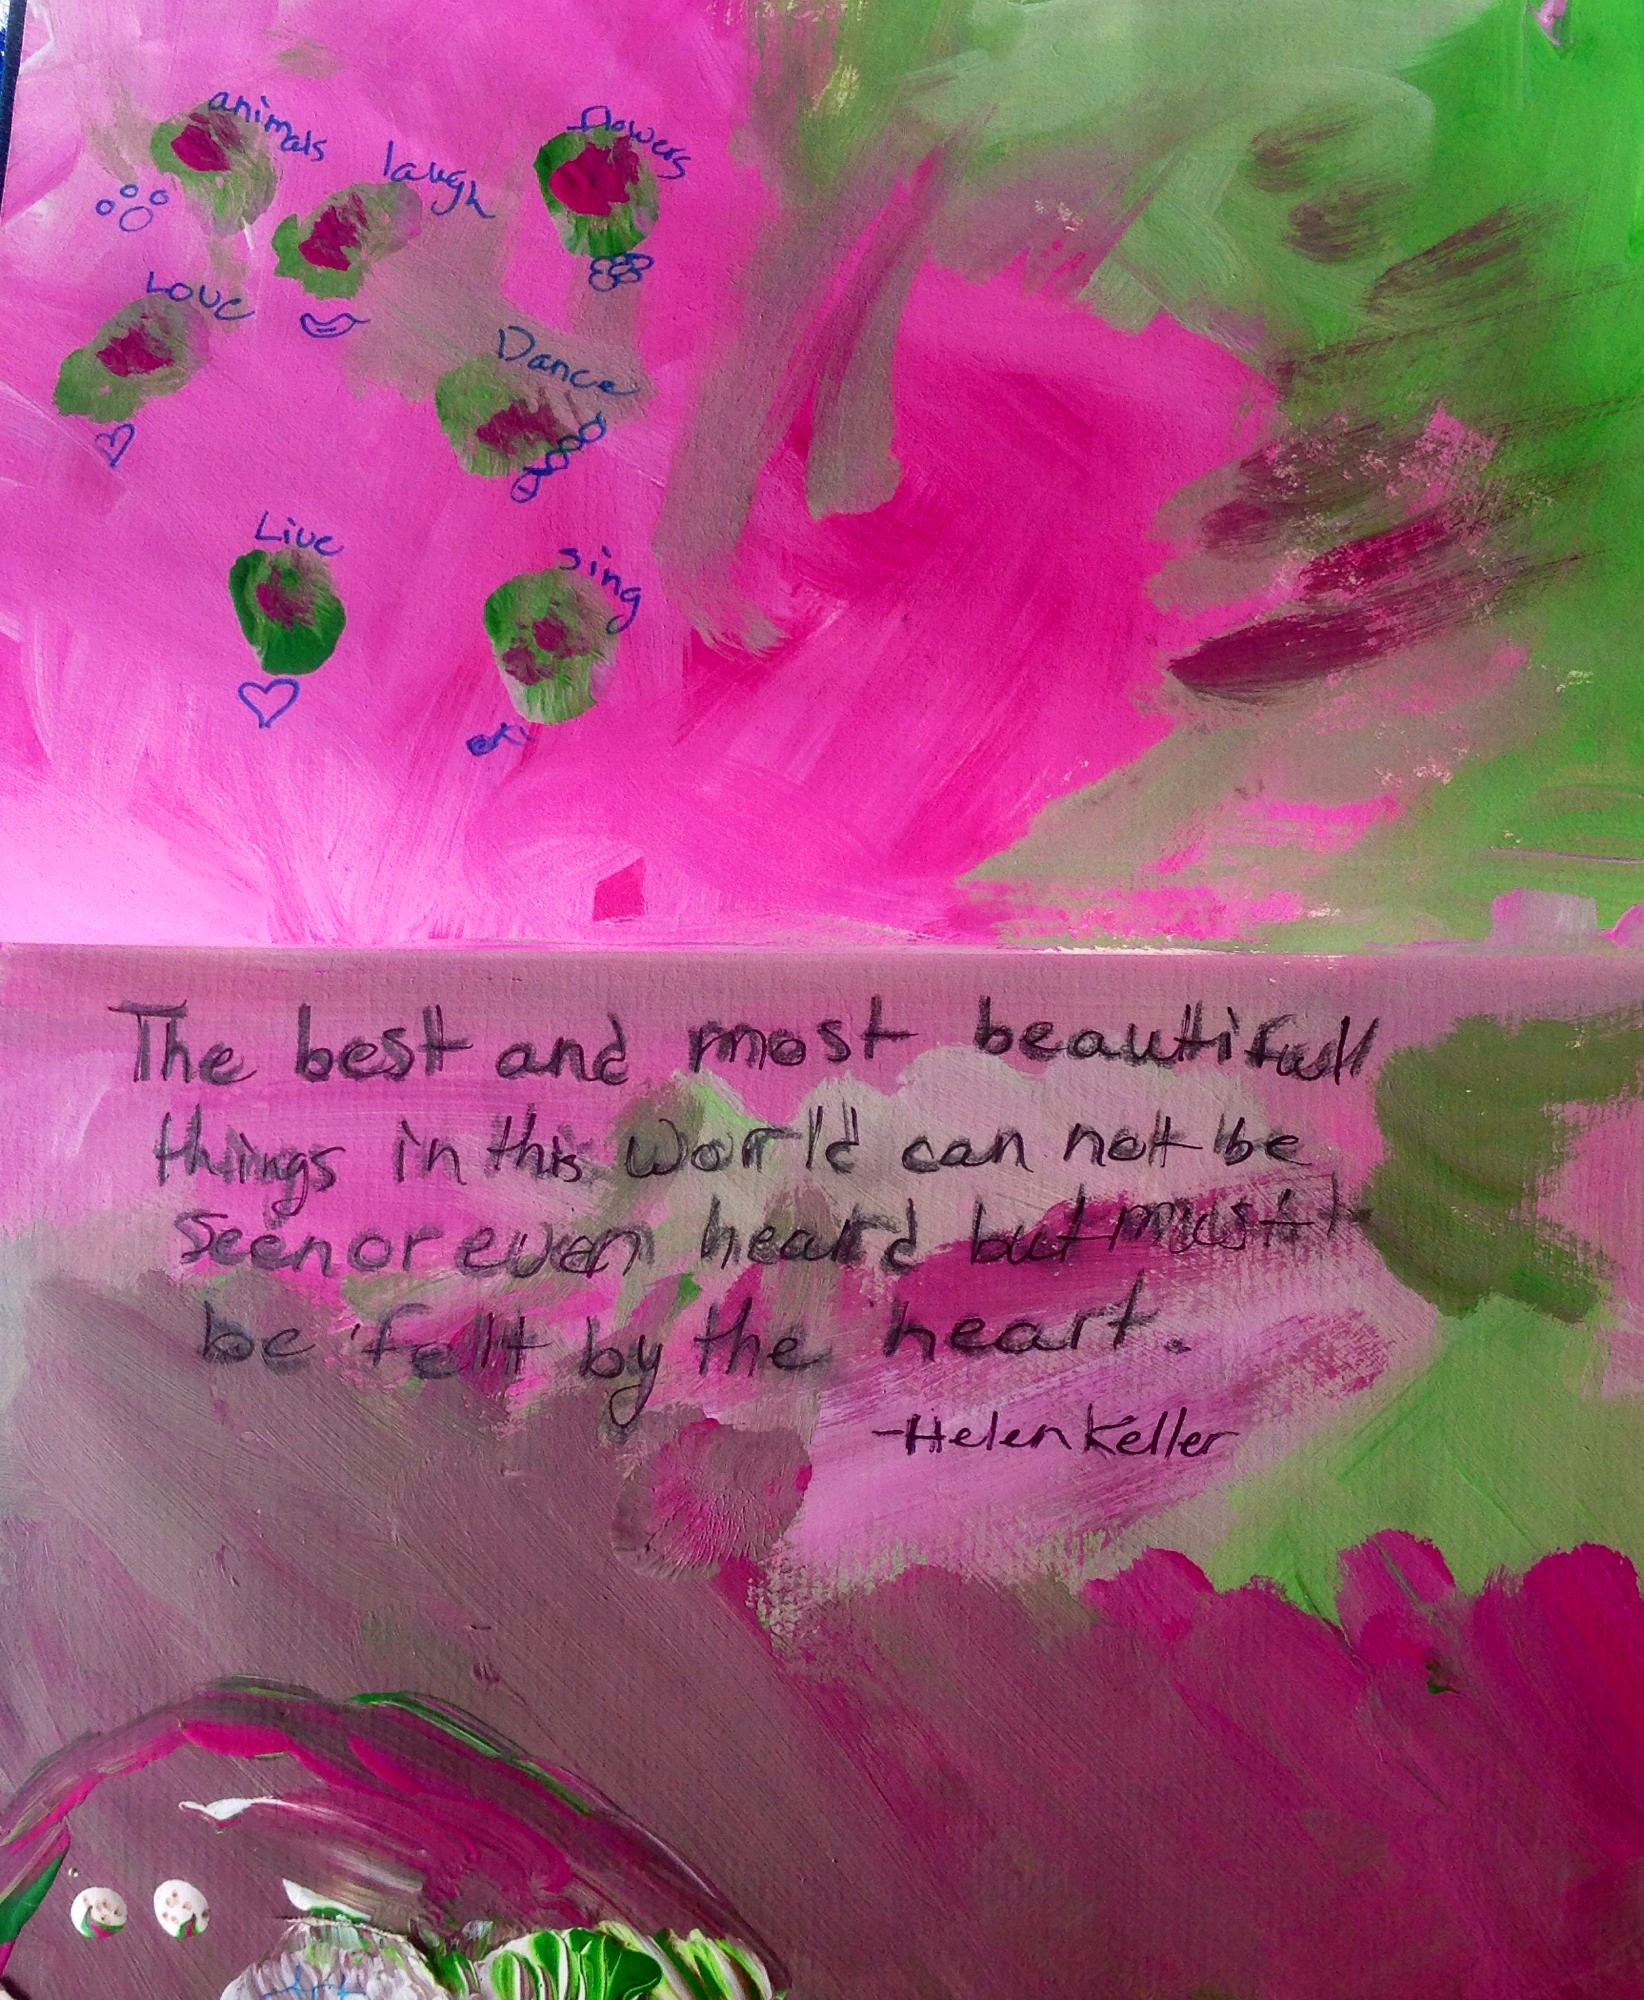 animals
laugh
flowers
Love
Dance
Live
sing
The best and most beautifull
things in this world can not be
seen or even heard but must
be felt by the heart.
-Helen Keller